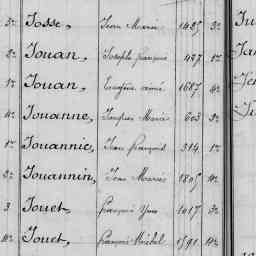 3e Josse, Jean Marie 1485 3e Ju
2e Jouan, Joseph François 427 1e Ja
1e Jouan, Eugène aimé 1687 4e Je
4e Jouanne, Jacques Marie 603 3e Je
1e Jouannic, Jean François 314 1e
2e Jouannin, Jean Marie 1805 4e
3 Jouet, François Yves 1017 3e
4e Jouet, François Michel 1591 4e